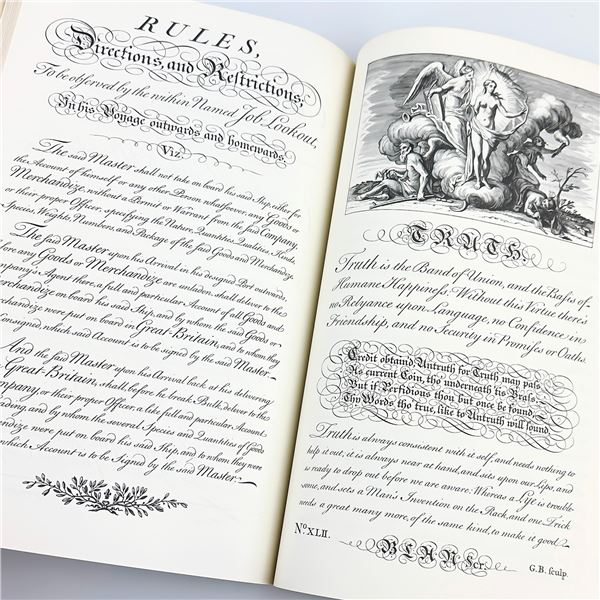 RULES,
Directions, and Restrictions,
To be observed by the within Named Job Lookout,
In his Voyage outwards and homewards
Viz
The said Master shall not take on board his said Ship, either for
the Account of himself or any other Person whatsoever, any Goods or
Merchandize, without a Permit or Warrant from the said Company,
or their proper Officer, specifying the Nature, Quantities, Qualities, Kinds,
Species, Weights, Numbers, and Package of the said Goods and Merchandize
The said Master upon his Arrival in his designed Port outwards,
before any Goods or Merchandize are unladen, shall deliver to the
Company's Agent there, a full and particular Account of all Goods and
Merchandize were put on board his said Ship, and by whom the said Goods or
put on board from Great-Britain, and to whom they
Consigned, which said Account is to be signed by the said Master.
And the said Master upon his Arrival back at his delivering
Great-Britain, shall, before he break Bulk, deliver to the
Company, or their proper Officer, a like full and particular Account
and by whom the several Species and Quantities of Goods
Merchandize were put on board his said Ship, and to whom they were
which Account is to be Signed by the said Master.
TRUTH.
Truth is the Band of Union, and the Basis of
Humane Happiness: Without this Virtue there's
no Relyance upon Language, no Confidence in
Friendship, and no Security in Promises or Oaths.
Credit obtaind Untruth for Truth may pass
As current Coin, tho' underneath tis Brass
But if Perfidious thou but once be found,
Thy Words tho' true, like to Untruth will sound
Truth is always consistent with it self, and needs nothing to
help it out; it is always near at hand, and sets upon our Lips, and
is ready to drop out before we are aware: Whereas a Lye is trouble-
some, and sets a Man's Invention on the Rack, and one Trick
needs a great many more, of the same kind, to make it good.
No. XLII.
BLAN Scr.
G.B. sculp.